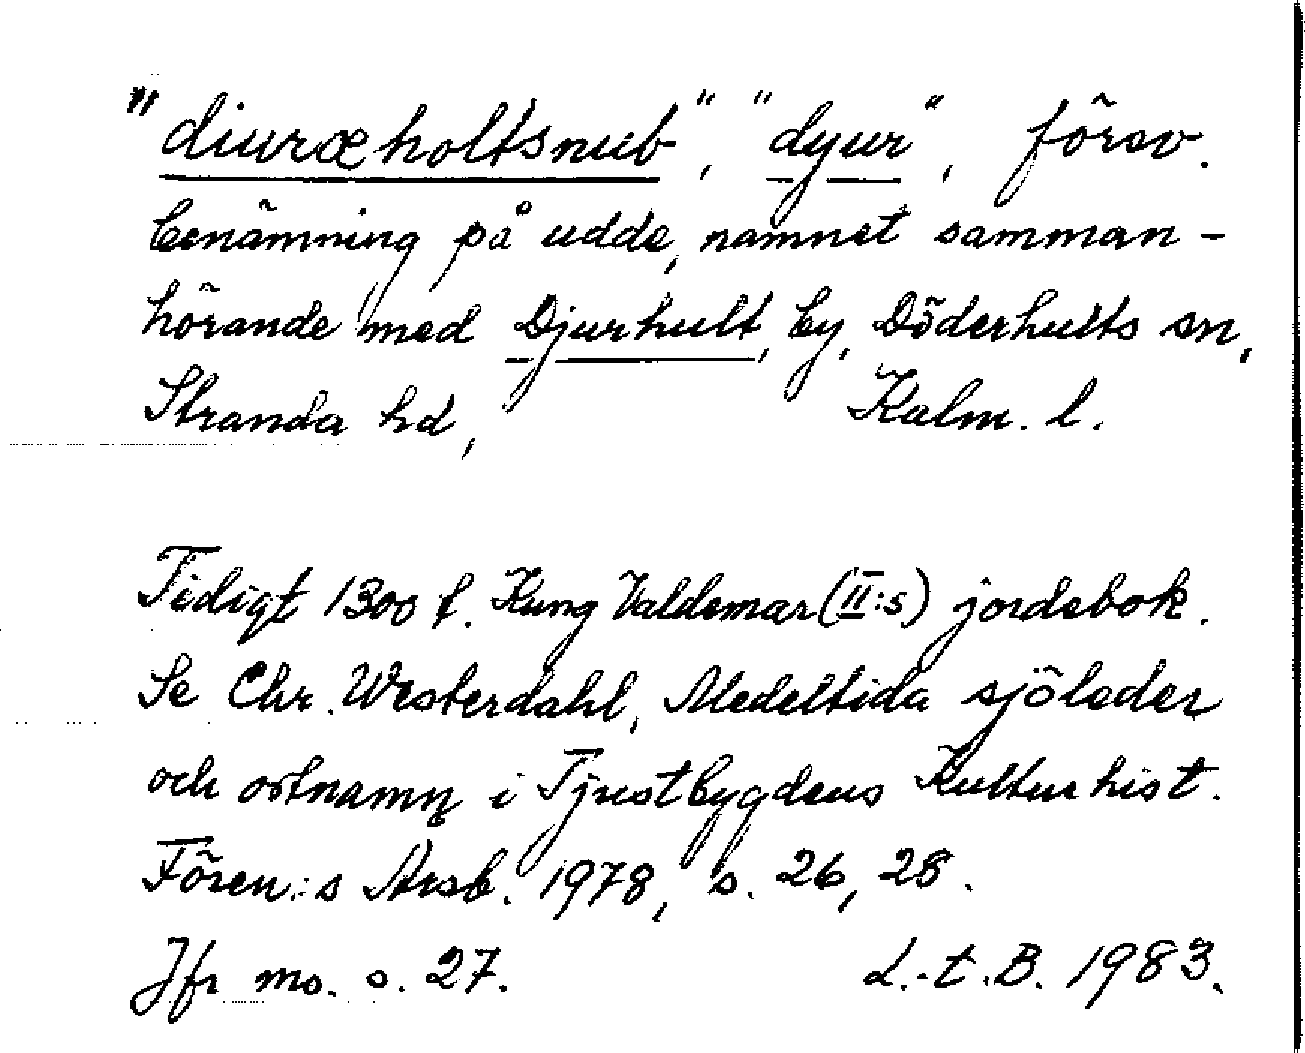 "diuræholtsnub", "dyur", försv.
benämning på udde, namnet samman-
hörande med Djurhult, by, Döderhults sn,
Stranda hd, Kalm. l.
Tidigt 1300 t. Kung Valdemar (II:s) jordebok.
Se Chr. Westerdahl, Medeltida sjöleder
och ortnamn i Tjustbygdens Kulturhist.
Fören:s Årsb. 1978, s. 26, 28.
Jfr ms. s. 27. L.-t.B. 1983.